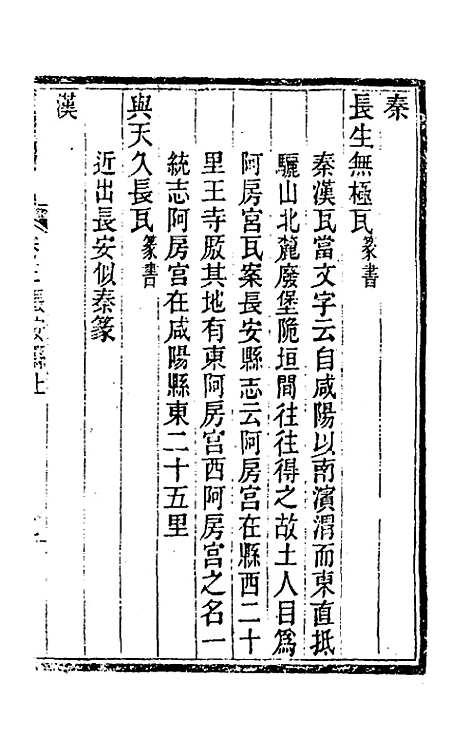 秦
長生無極瓦篆書
秦漢瓦當文字云自咸陽以南濱渭而東直抵
驪山北麓廢堡隤垣間往往得之故土人目爲
阿房宮瓦案長安縣志云阿房宮在縣西二十
里王寺殿其地有東阿房宮西阿房宮之名一
統志阿房宮在咸陽縣東二十五里
與天久長瓦篆書
近出長安似秦篆
漢